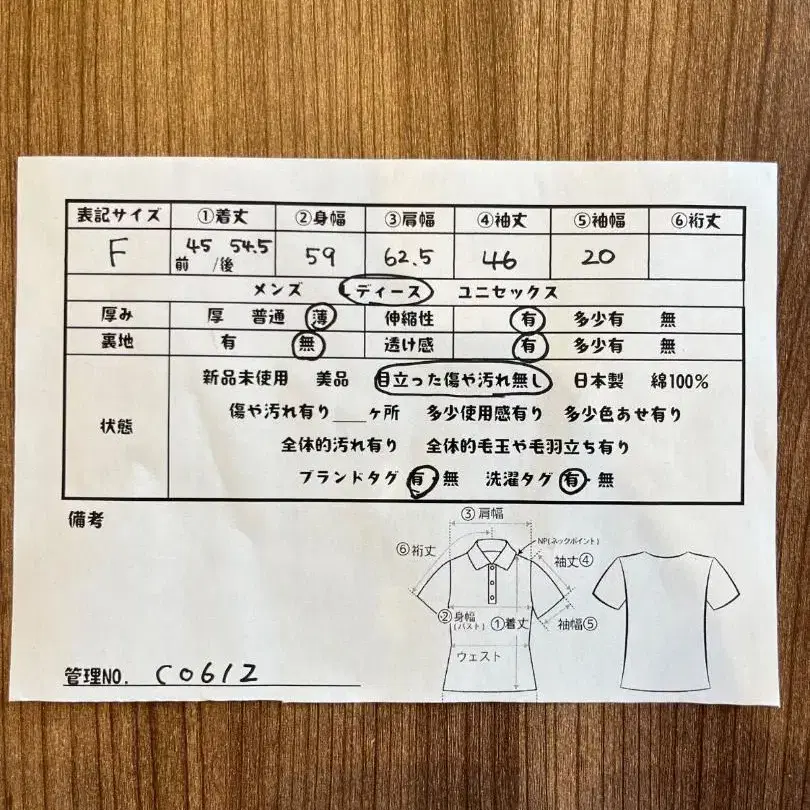 表記サイズ ①着丈 ②身幅 ③肩幅 ④袖丈 ⑤袖幅 ⑥裄丈
F 45 54.5 59 62.5 46 20
前 /後
メンズ レディース ユニセックス
厚み 厚 普通 薄 伸縮性 有 多少有 無
裏地 有 無 透け感 有 多少有 無
状態
新品未使用 美品 目立った傷や汚れ無し 日本製 綿100%
傷や汚れ有り___ヶ所 多少使用感有り 多少色あせ有り
全体的汚れ有り 全体的毛玉や毛羽立ち有り
ブランドタグ 有・無 洗濯タグ 有・無
備考
③肩幅
⑥裄丈
NP(ネックポイント)
袖丈④
②身幅
(バスト)
①着丈
袖幅⑤
ウェスト
管理NO. C0612